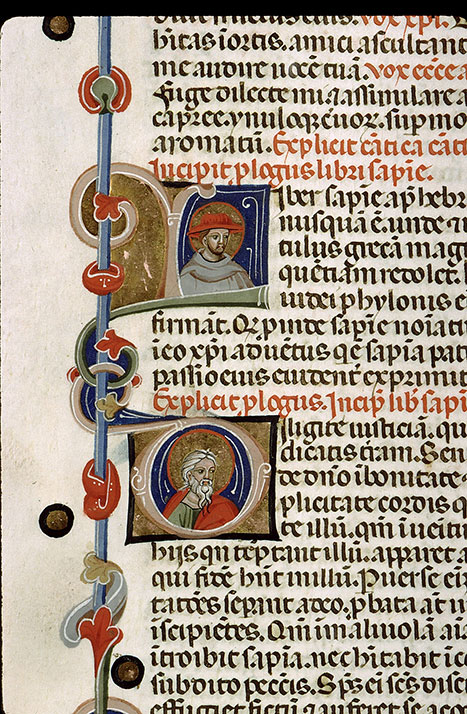 bitas iortis. amici ascultant
me audire uocē tuā. vox ecc̄e a
Fuge dilecte mi ⁊ assimulare
capree. ynuloq; ceruor̄. sup̄ mo
aromatū. Explicit cātica cāti
Incipit p̄logus libri sapīe.
Liber sapīe ap̄ hebr
nusquā ē. unde ⁊
tulus grecā magi
quētiam redolet.
iudei phylonis e
firmāt. Q̄ p̄inde sapīe noīat
ico xp̄i aduētus q̄ ē sapīa pat
passio eius euident̄ exprimit
Explicit p̄logus. Incip̄ lib̄ sapī
Diligite iusticiā. qui
dicatis t̄ram. Sen
te de dn̄o ī bonitate
plicitate cordis q
te illū. qm̄ īueīt
hijs qui tēptant illū. apparet a
qui fidē hn̄t ī illū. Puer̄se ei
tatōes sep̄ant a deo. p̄bata at̄
īscipiētes. Qm̄ ī maliuolā aīa
ītroibit sapīa. nec hītabit ī c
subdito pecc̄is. Sp̄s eī sc̄s disc
effugiet fictū ⁊ auferet se a co